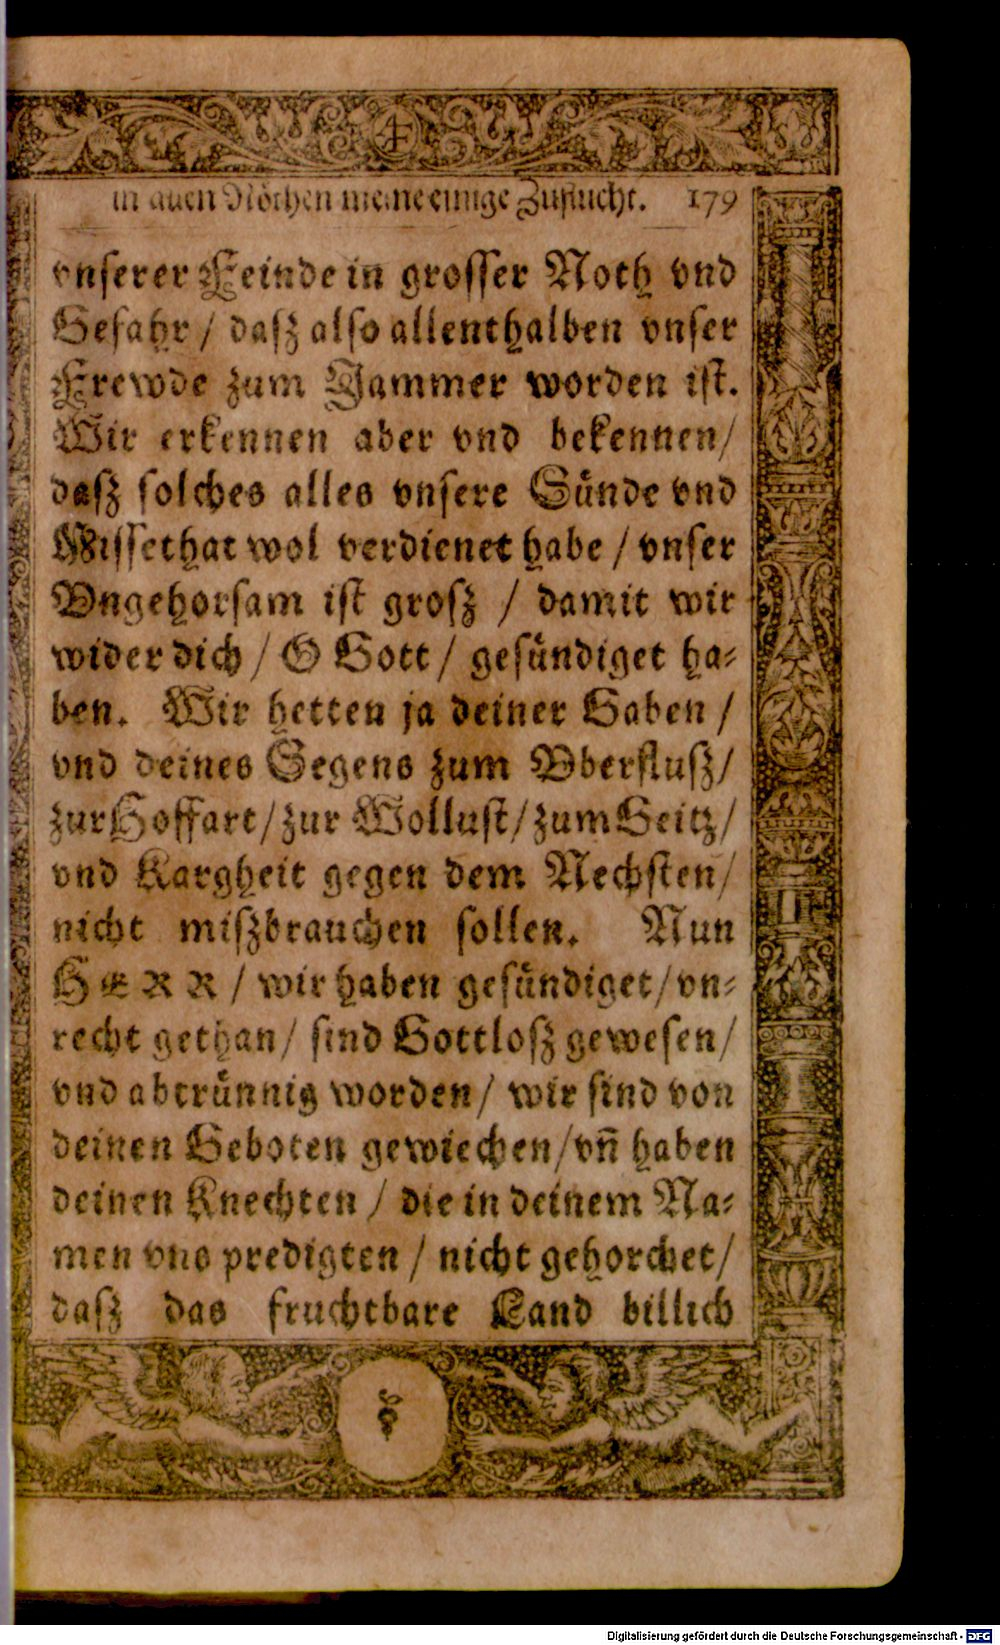 in allen Nöthen meine einige Zuflucht. 179
vnserer Feinde in grosser Noth vnd
Gefahr / dasz also allenthalben vnser
Frewde zum Jammer worden ist.
Wir erkennen aber vnd bekennen/
dasz solches alles vnsere Sünde vnd
Missethat wol verdienet habe / vnser
Vngehorsam ist grosz / damit wir
wider dich / O Gott / gesündiget ha-
ben. Wir hetten ja deiner Gaben /
vnd deines Segens zum Vberflusz/
zur Hoffart/ zur Wollust/ zum Geitz/
vnd Kargheit gegen dem Nechsten/
nicht miszbrauchen sollen. Nun
HERR / wir haben gesündiget/ vn-
recht gethan/ sind Gottlosz gewesen/
vnd abtrünnig worden/ wir sind von
deinen Geboten gewiechen/ vñ haben
deinen Knechten / die in deinem Na-
men vns predigten / nicht gehorchet/
dasz das fruchtbare Land billich
Digitalisierung gefördert durch die Deutsche Forschungsgemeinschaft - DFG